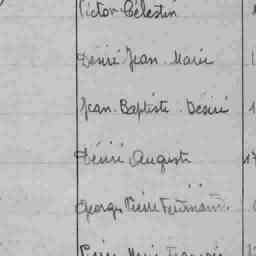 Victor Célestin
Désiré Jean Marie
Jean Baptiste Désiré
Désiré Auguste
17
Georges Pierre Ferdinand
Pierre Marie François